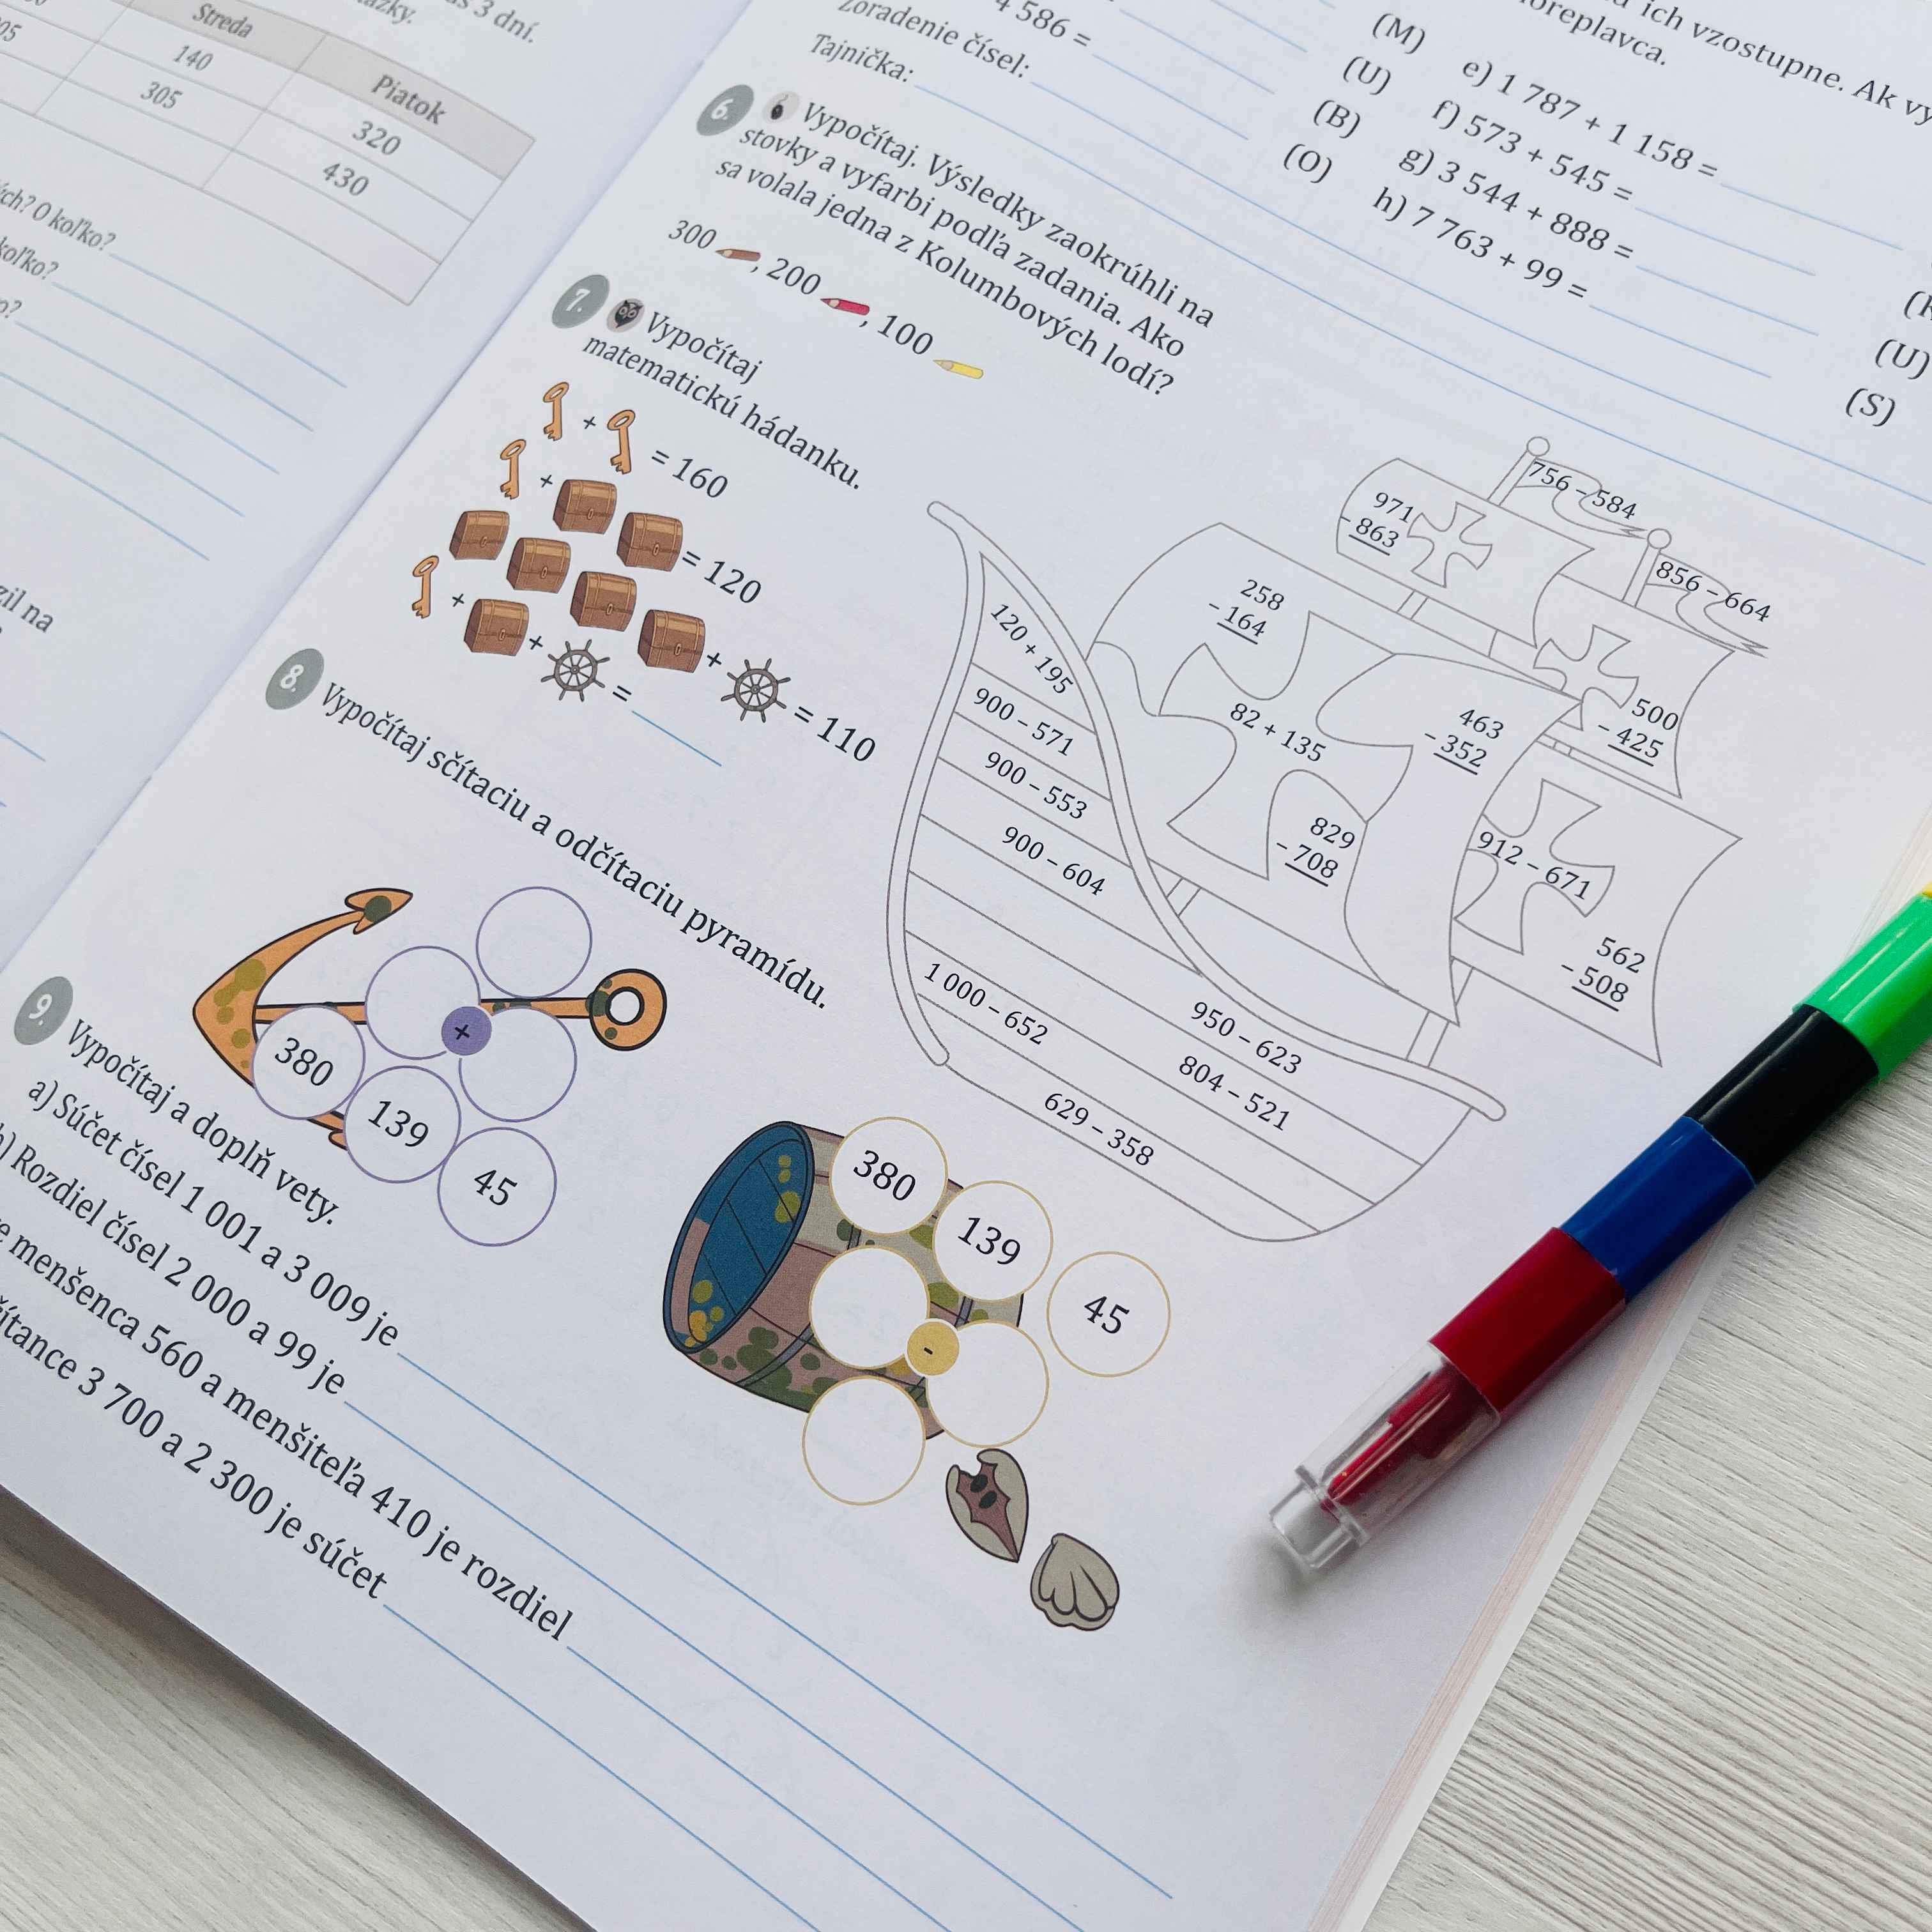 3 dní.
Streda
Piatok
140
320
305
430
O koľko?
zil na
4 586 =
Zoradenie čísel:
Tajnička:
ich vzostupne. Ak
(M)
(U)
(B)
(O)
e) 1 787 + 1 158 =
f) 573 + 545 =
g) 3 544 + 888 =
h) 7 763 + 99 =
(U)
(S)
6. Vypočítaj. Výsledky zaokrúhli na
stovky a vyfarbi podľa zadania. Ako
sa volala jedna z Kolumbových lodí?
300 , 200 , 100
756 – 584
971
- 863
856 – 664
258
- 164
500
- 425
120 + 195
82 + 135
463
- 352
900 – 571
900 – 553
829
- 708
912 – 671
900 – 604
562
- 508
1 000 – 652
950 – 623
804 – 521
629 – 358
7. Vypočítaj
matematickú hádanku.
+ = 160
+ = 120
+ = 110
+ + =
8. Vypočítaj sčítaciu a odčítaciu pyramídu.
+
380
139
45
380
139
45
-
9. Vypočítaj a doplň vety.
a) Súčet čísel 1 001 a 3 009 je
b) Rozdiel čísel 2 000 a 99 je
menšenca 560 a menšiteľa 410 je rozdiel
3 700 a 2 300 je súčet